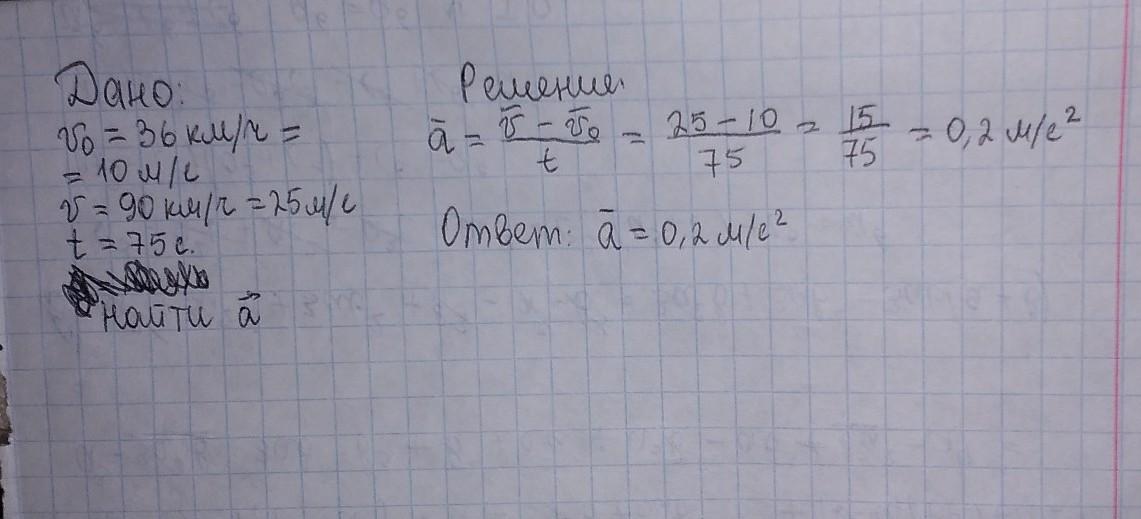 Дано:
v₀ = 36 км/ч =
= 10 м/с
v = 90 км/ч = 25 м/с
t = 75 с.
найти a⃗
Решение.
a̅ = (v̅ - v̅₀)/t = (25 - 10)/75 = 15/75 = 0,2 м/с²
Ответ: a̅ = 0,2 м/с²